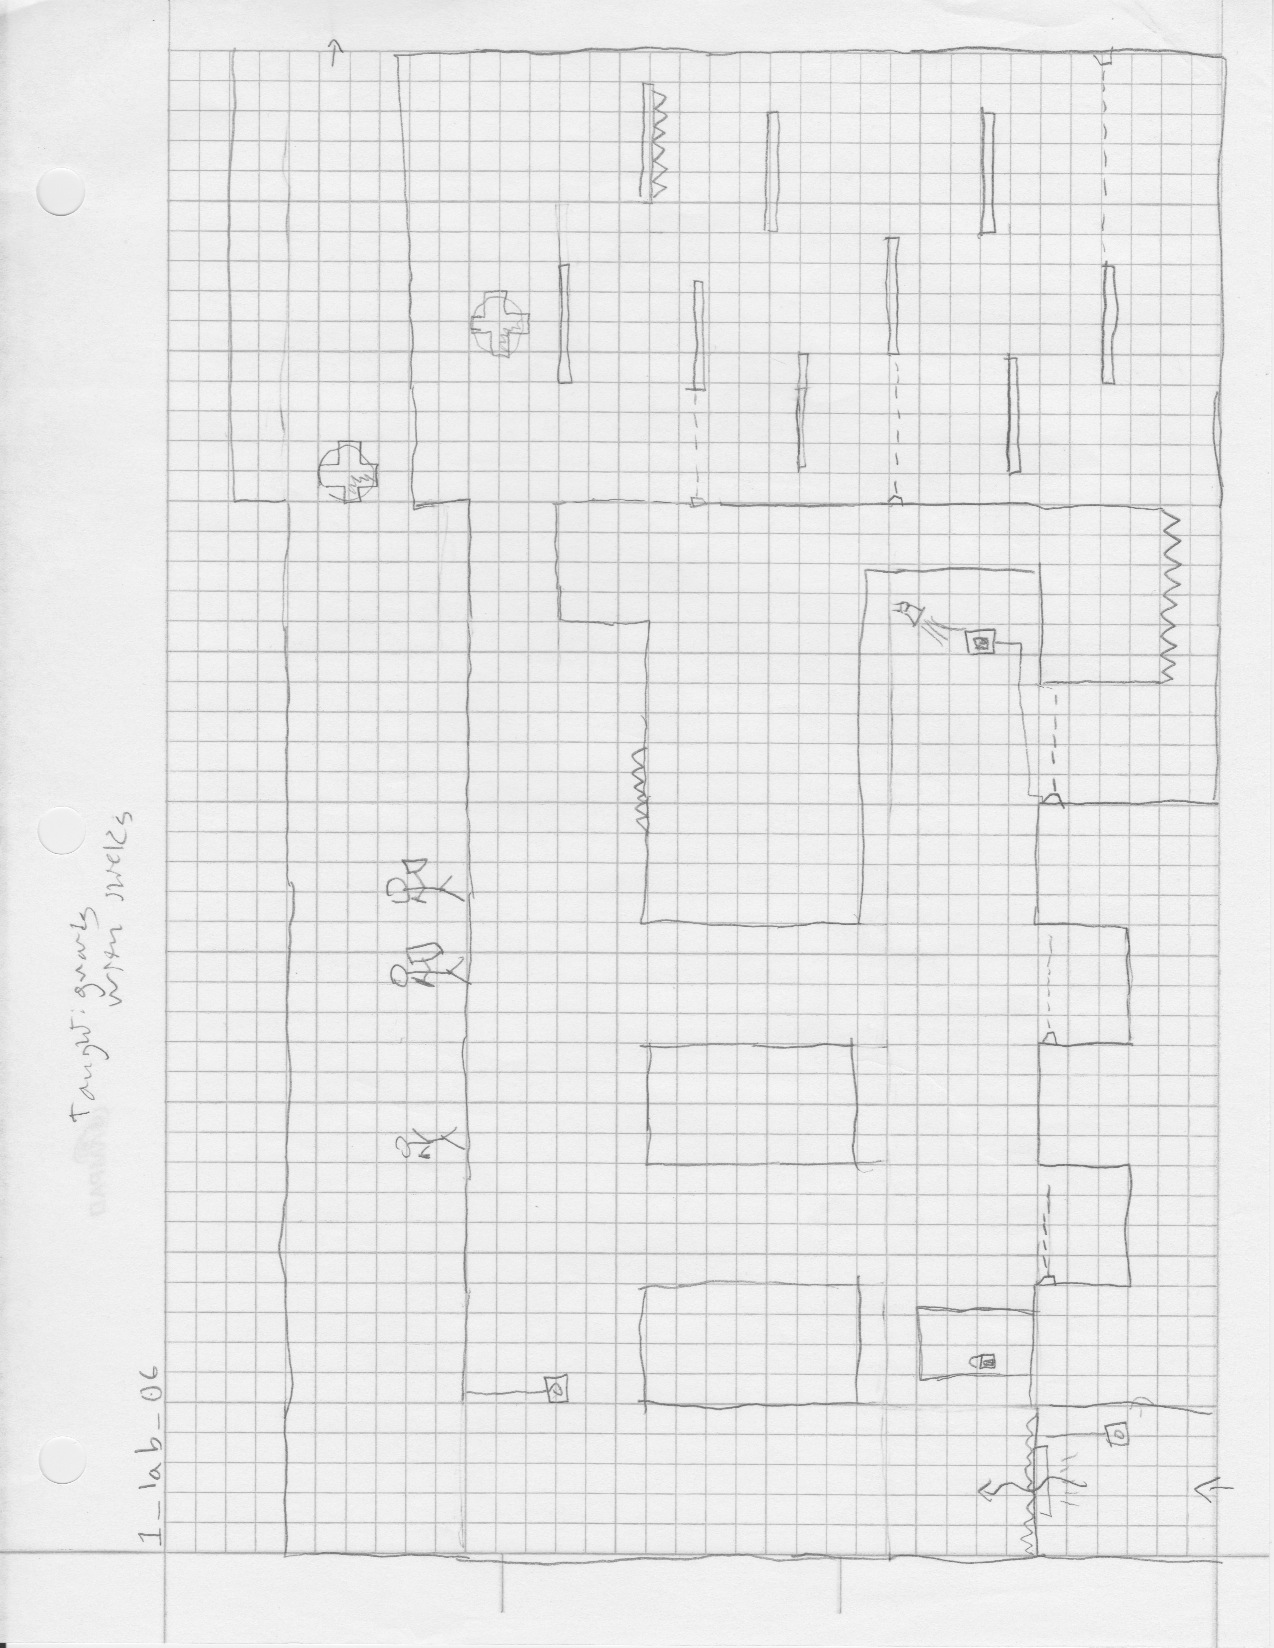 Taught: guards
with sticks
1_lab_06